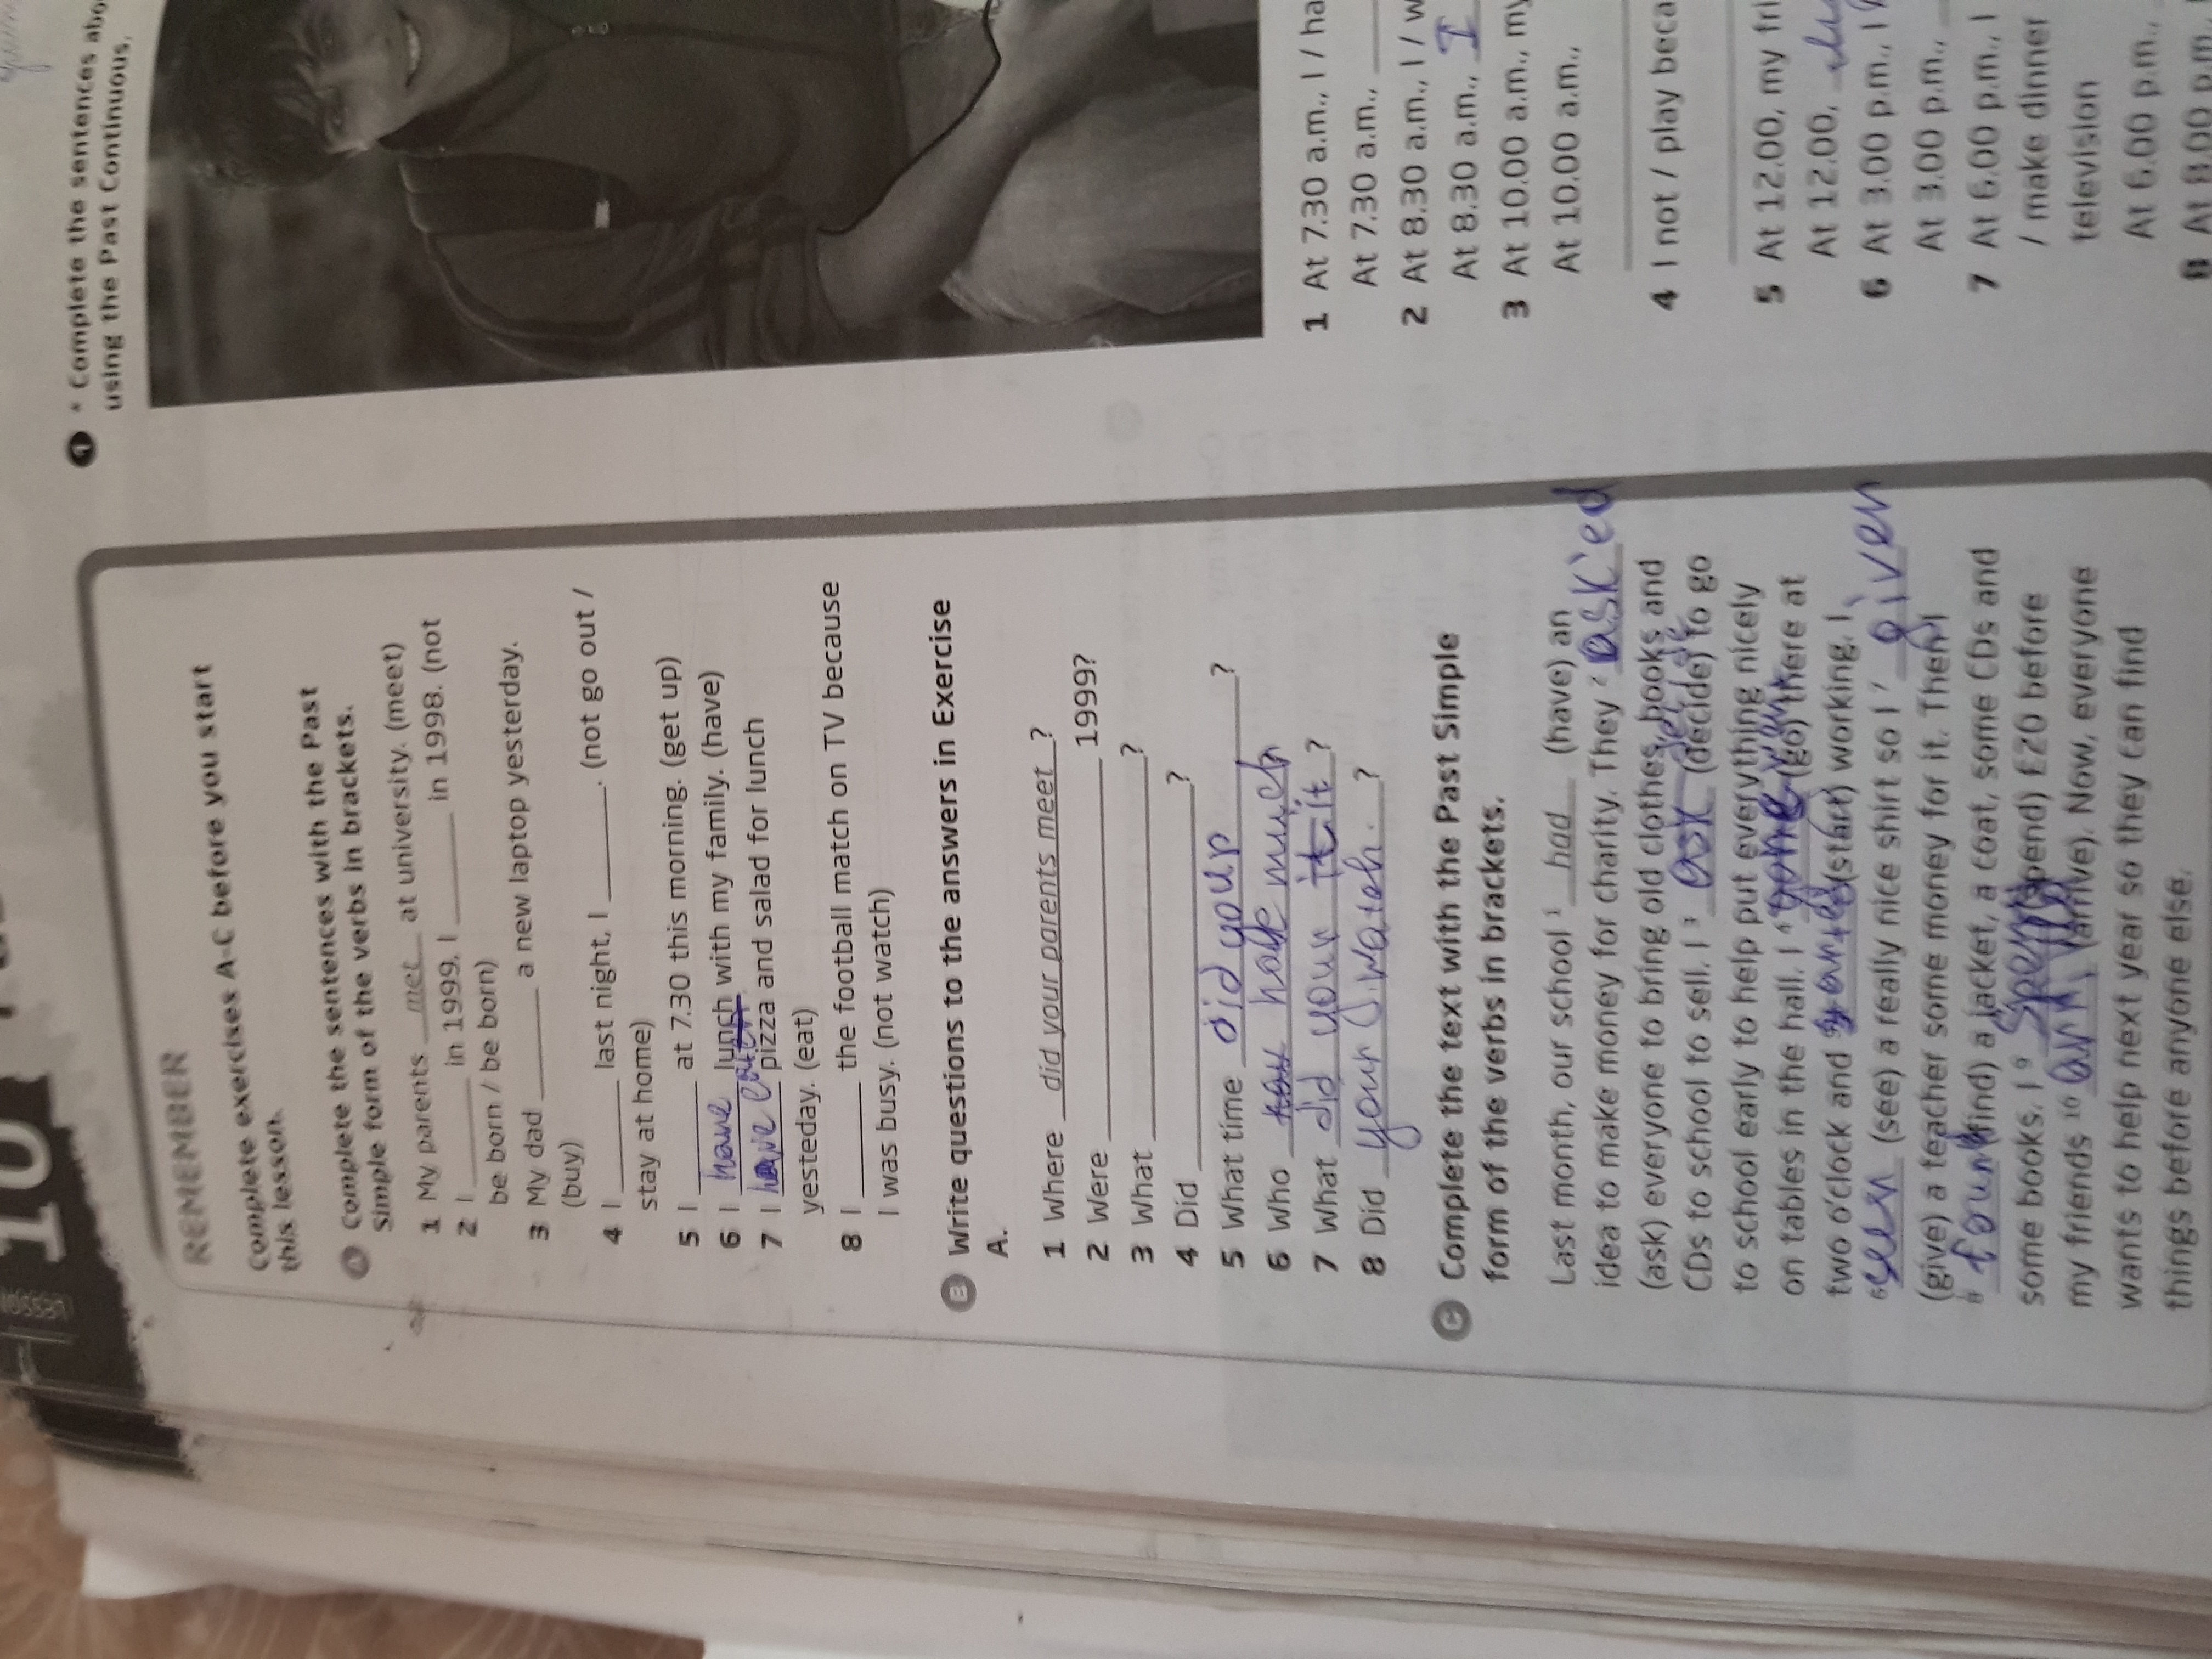 10
REMEMBER
Complete exercises A-C before you start
this lesson.
A Complete the sentences with the Past
Simple form of the verbs in brackets.
1 My parents met at university. (meet)
2 I ______ in 1999. I ______ in 1998. (not
be born / be born)
3 My dad ______ a new laptop yesterday.
(buy)
4 I ______ last night, I ______. (not go out /
stay at home)
5 I ______ at 7.30 this morning. (get up)
6 I have lunch with my family. (have)
7 I have pizza and salad for lunch
yesteday. (eat)
8 I ______ the football match on TV because
I was busy. (not watch)
B Write questions to the answers in Exercise
A.
1 Where did your parents meet ?
2 Were ______ 1999?
3 What ______ ?
4 Did ______ ?
5 What time did your ?
6 Who have much
7 What did your it it ?
8 Did your watch. ?
C Complete the text with the Past Simple
form of the verbs in brackets.
Last month, our school 1 had (have) an
idea to make money for charity. They 2 ask'ed
(ask) everyone to bring old clothes, books and
CDs to school to sell. I 3 ask (decide) to go
to school early to help put everything nicely
on tables in the hall. I 4 gone (go) there at
two o'clock and (start) working. I
6 seen (see) a really nice shirt so I 7 given
(give) a teacher some money for it. Then I
8 found (find) a jacket, a coat, some CDs and
some books. I 9 spend (spend) £20 before
my friends 10 (arrive). Now, everyone
wants to help next year so they can find
things before anyone else.
4 * Complete the sentences abo
using the Past Continuous.
1 At 7.30 a.m., I / ha
At 7.30 a.m., ______
2 At 8.30 a.m., I / w
At 8.30 a.m., I
3 At 10.00 a.m., my
At 10.00 a.m.,
4 I not / play beca
5 At 12.00, my fri
At 12.00,
6 At 3.00 p.m., I
At 3.00 p.m.,
7 At 6.00 p.m., I
/ make dinner
television
At 6.00 p.m.,
8 At 8.00 p.m.